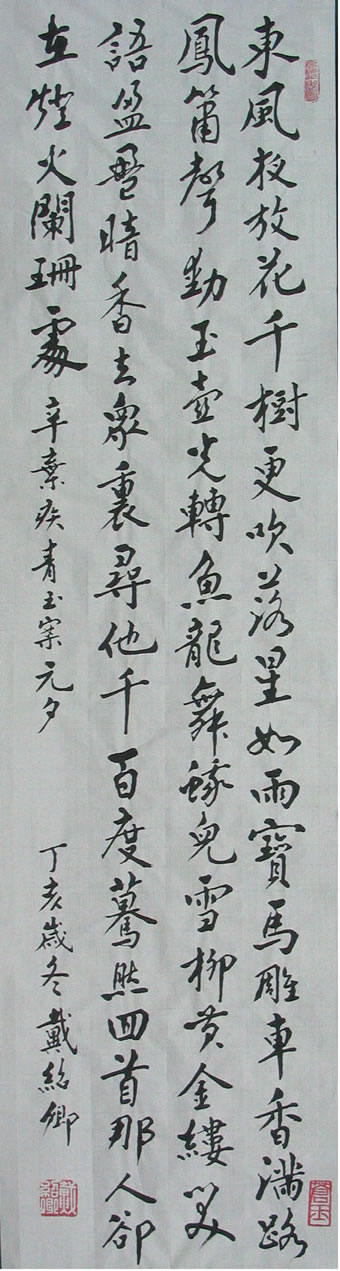 東風夜放花千樹更吹落星如雨寶馬雕車香滿路
鳳簫聲動玉壺光轉魚龍舞蛾兒雪柳黃金縷笑
語盈盈暗香去眾裏尋他千百度驀然回首那人卻
在燈火闌珊處 辛棄疾青玉案元夕 丁亥歲冬戴紹卿